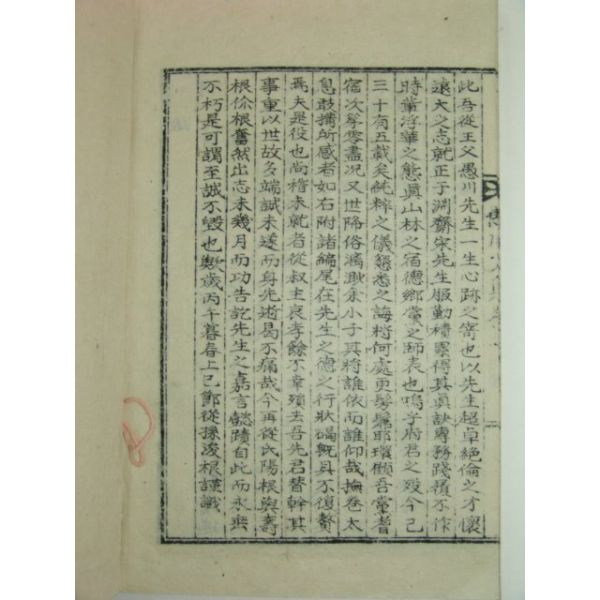 此吾從王父愚川先生一生心跡之寄也以先生超卓絶倫之才懷
遠大之志就正于淵齋宋先生服勤積累得其眞訣專務踐履不作
時輩浮華之態眞山林之宿德鄕黨之師表也嗚乎府君之歿今已
三十有五載矣純粹之儀懇悉之誨將何處更
吾黨耆
宿次第零盡况又世降俗渝耿余小子其將誰依而誰仰哉撫卷太
息敢擄所感者如右附諸編尾在先生之德之行狀碣旣具不復贅
焉夫是役也尚稽未就者從叔主哀孝餘不幸殞去吾先君替幹其
事重以世故多端誠未遂而身先逝曷不痛哉今再從氏陽根與壽
根伱根奮然出志未幾月而功告訖先生之嘉言懿蹟自此而永垂
不朽是可謂至誠不毁也歟歲丙午暮春上巳節從孫浚根謹識